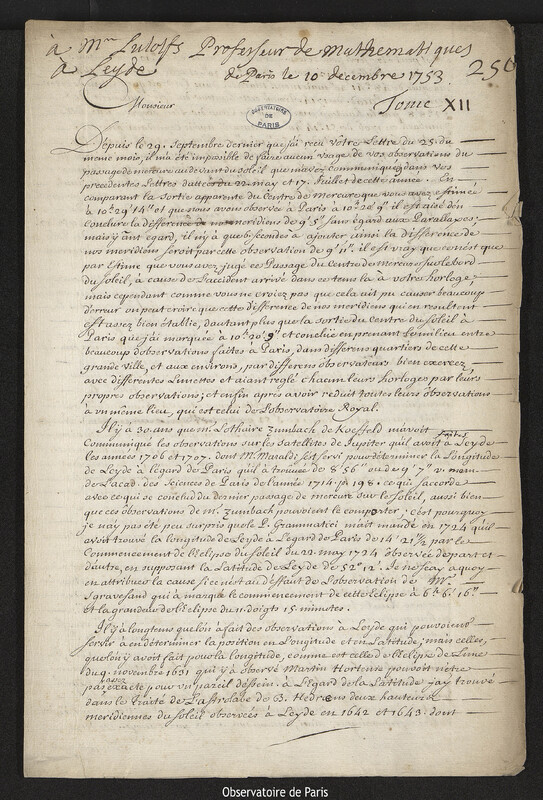 à Mr. Lulofs Professeur de Mathematiques
a Leyde
de Paris le 10 decembre 1753.
256
Tome XII
OBSERVATOIRE DE PARIS
Monsieur
Depuis le 29. Septembre dernier que j'ai receu Votre Lettre du 25. du
meme mois, il m'a été impossible de faire aucun usage de vos observations du
passage de mercure au devant du Soleil que m'avez communiquez dans vos
precedentes Lettres datteés du 22. may et 17. Juillet de cette année. En
comparant la sortie apparente du Centre de Mercure que vous avez estimée
à 10h 29' 14" et que nous avons observée à Paris à 10h 20' 9" il est aisé d'en
conclure la difference de meridiens de 9' 5" sans égard aux Parallaxes;
mais y aiant égard, il n'y a que 6 secondes à ajouter ainsi la difference de
nos meridiens seroit par cette observation de 9' 11". il est vray que ce n'est que
par Estime que vous avez jugé ce Passage du Centre de mercure sur le bord
du Soleil, à cause de l'accident arrivé dans ce tems là à votre horloge,
mais cependant comme vous ne croiez pas que cela ait pu causer beaucoup
d'erreur on peut croire que cette difference de nos meridiens qui en resulte
est assez bien établie, d'autant plus que la sortie du Centre du Soleil à
Paris que j'ai marquée à 10h 20' 9" et conclue en prenant le milieu entre
beaucoup d'observations faites à Paris, dans differens quartiers de cette
grande ville, et aux environs, par differens observateurs bien exercez
avec differentes Lunettes et aiant reglé chacun leurs horloges par leurs
propres observations; et enfin après avoir reduit toutes leurs observations
à un même lieu, qui est celui de L'observatoire Royal.
Il y a 30 ans que M. Lothaire Zumbach de Koesfeld m'avoit
Communiqué les observations sur les Satellites de Jupiter qu'il avoit faites à Leyde
les années 1706 et 1707. dont M. Maraldi s'est servi pour determiner la Longitude
de Leyde à l'égard de Paris qu'il a trouvée de 8' 56" ou de 9' 7" v. mem.
de l'acad. des Sciences de Paris de l'année 1714. p. 198. ce qui s'accorde
avec ce qui se conclud du dernier passage de mercure sur le Soleil, aussi bien
que ces observations de Mr. Zumbach pouvoient le comporter; c'est pourquoy
je n'ay pas été peu surpris que le P. Grammatici m'ait mandé en 1724 qu'il
avoit trouvé la longitude de Leyde à L'egard de Paris de 14' 21"½ par le
Commencement de l'Eclipse du Soleil du 22. may 1724 observée de part et
d'autre, en supposant la Latitude de Leyde de 52° 12'. Je ne scay a quoy
en attribuer la cause si ce n'est au deffaut de L'observation de Mr.
Sgravesand qui a marqué le commencement de cette Eclipse à 6h 6' 16"
et la grandeur de l'Eclipse du 11. doigts 15 minutes.
Il y a longtems que l'on a fait des observations à Leyde qui pouvoient
servir à en déterminer la position en Longitude et en Latitude; mais celles
que l'on y avoit fait pour la longitude, comme est celle de l'Eclipse de Lune
du 9. novembre 1631 qui y a observé Martin Hortens pouvoit n'être
pas assez exacte pour un pareil dessein. à L'égard de la Latitude j'ay trouvé
dans le traité de l'astrolabe de B. Hedraeus deux hauteurs
meridiennes du Soleil observées à Leyde en 1642 et 1643. dont
Observatoire de Paris